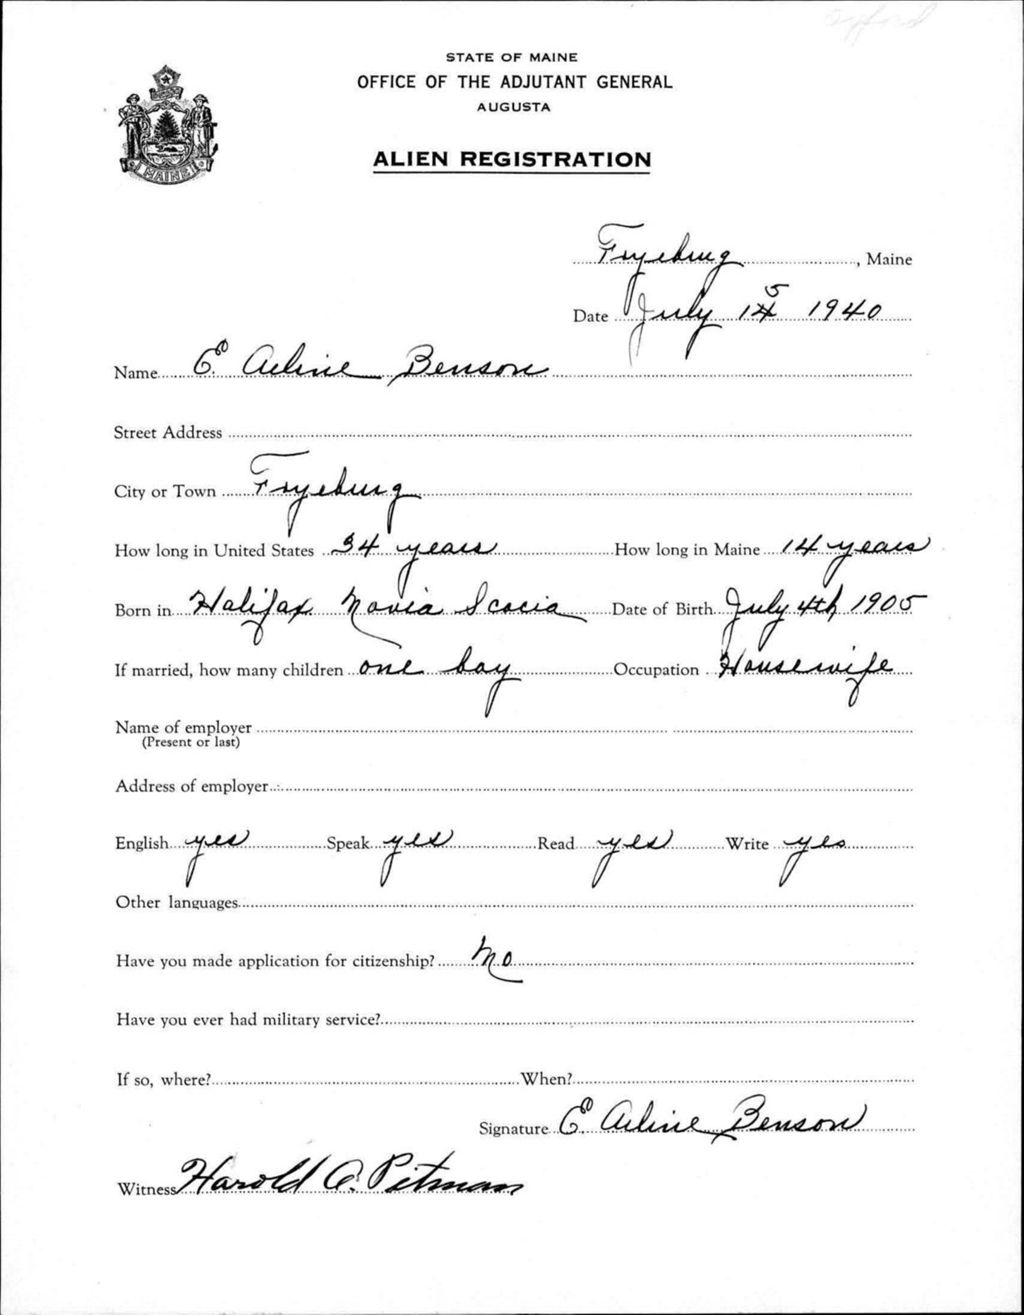 STATE OF MAINE
OFFICE OF THE ADJUTANT GENERAL
AUGUSTA
MAINE
ALIEN REGISTRATION
Fryeburg, Maine
Date July 15 1940
Name E. Arline Benson
Street Address
City or Town Fryeburg
How long in United States 34 years How long in Maine 14 years
Born in Halifax Novia Scocia Date of Birth July 4th 1905
If married, how many children one boy Occupation Housewife
Name of employer
(Present or last)
Address of employer
English yes Speak yes Read yes Write yes
Other languages
Have you made application for citizenship? No
Have you ever had military service?
If so, where? When?
Signature E. Arline Benson
Witness Harold A. Pitman